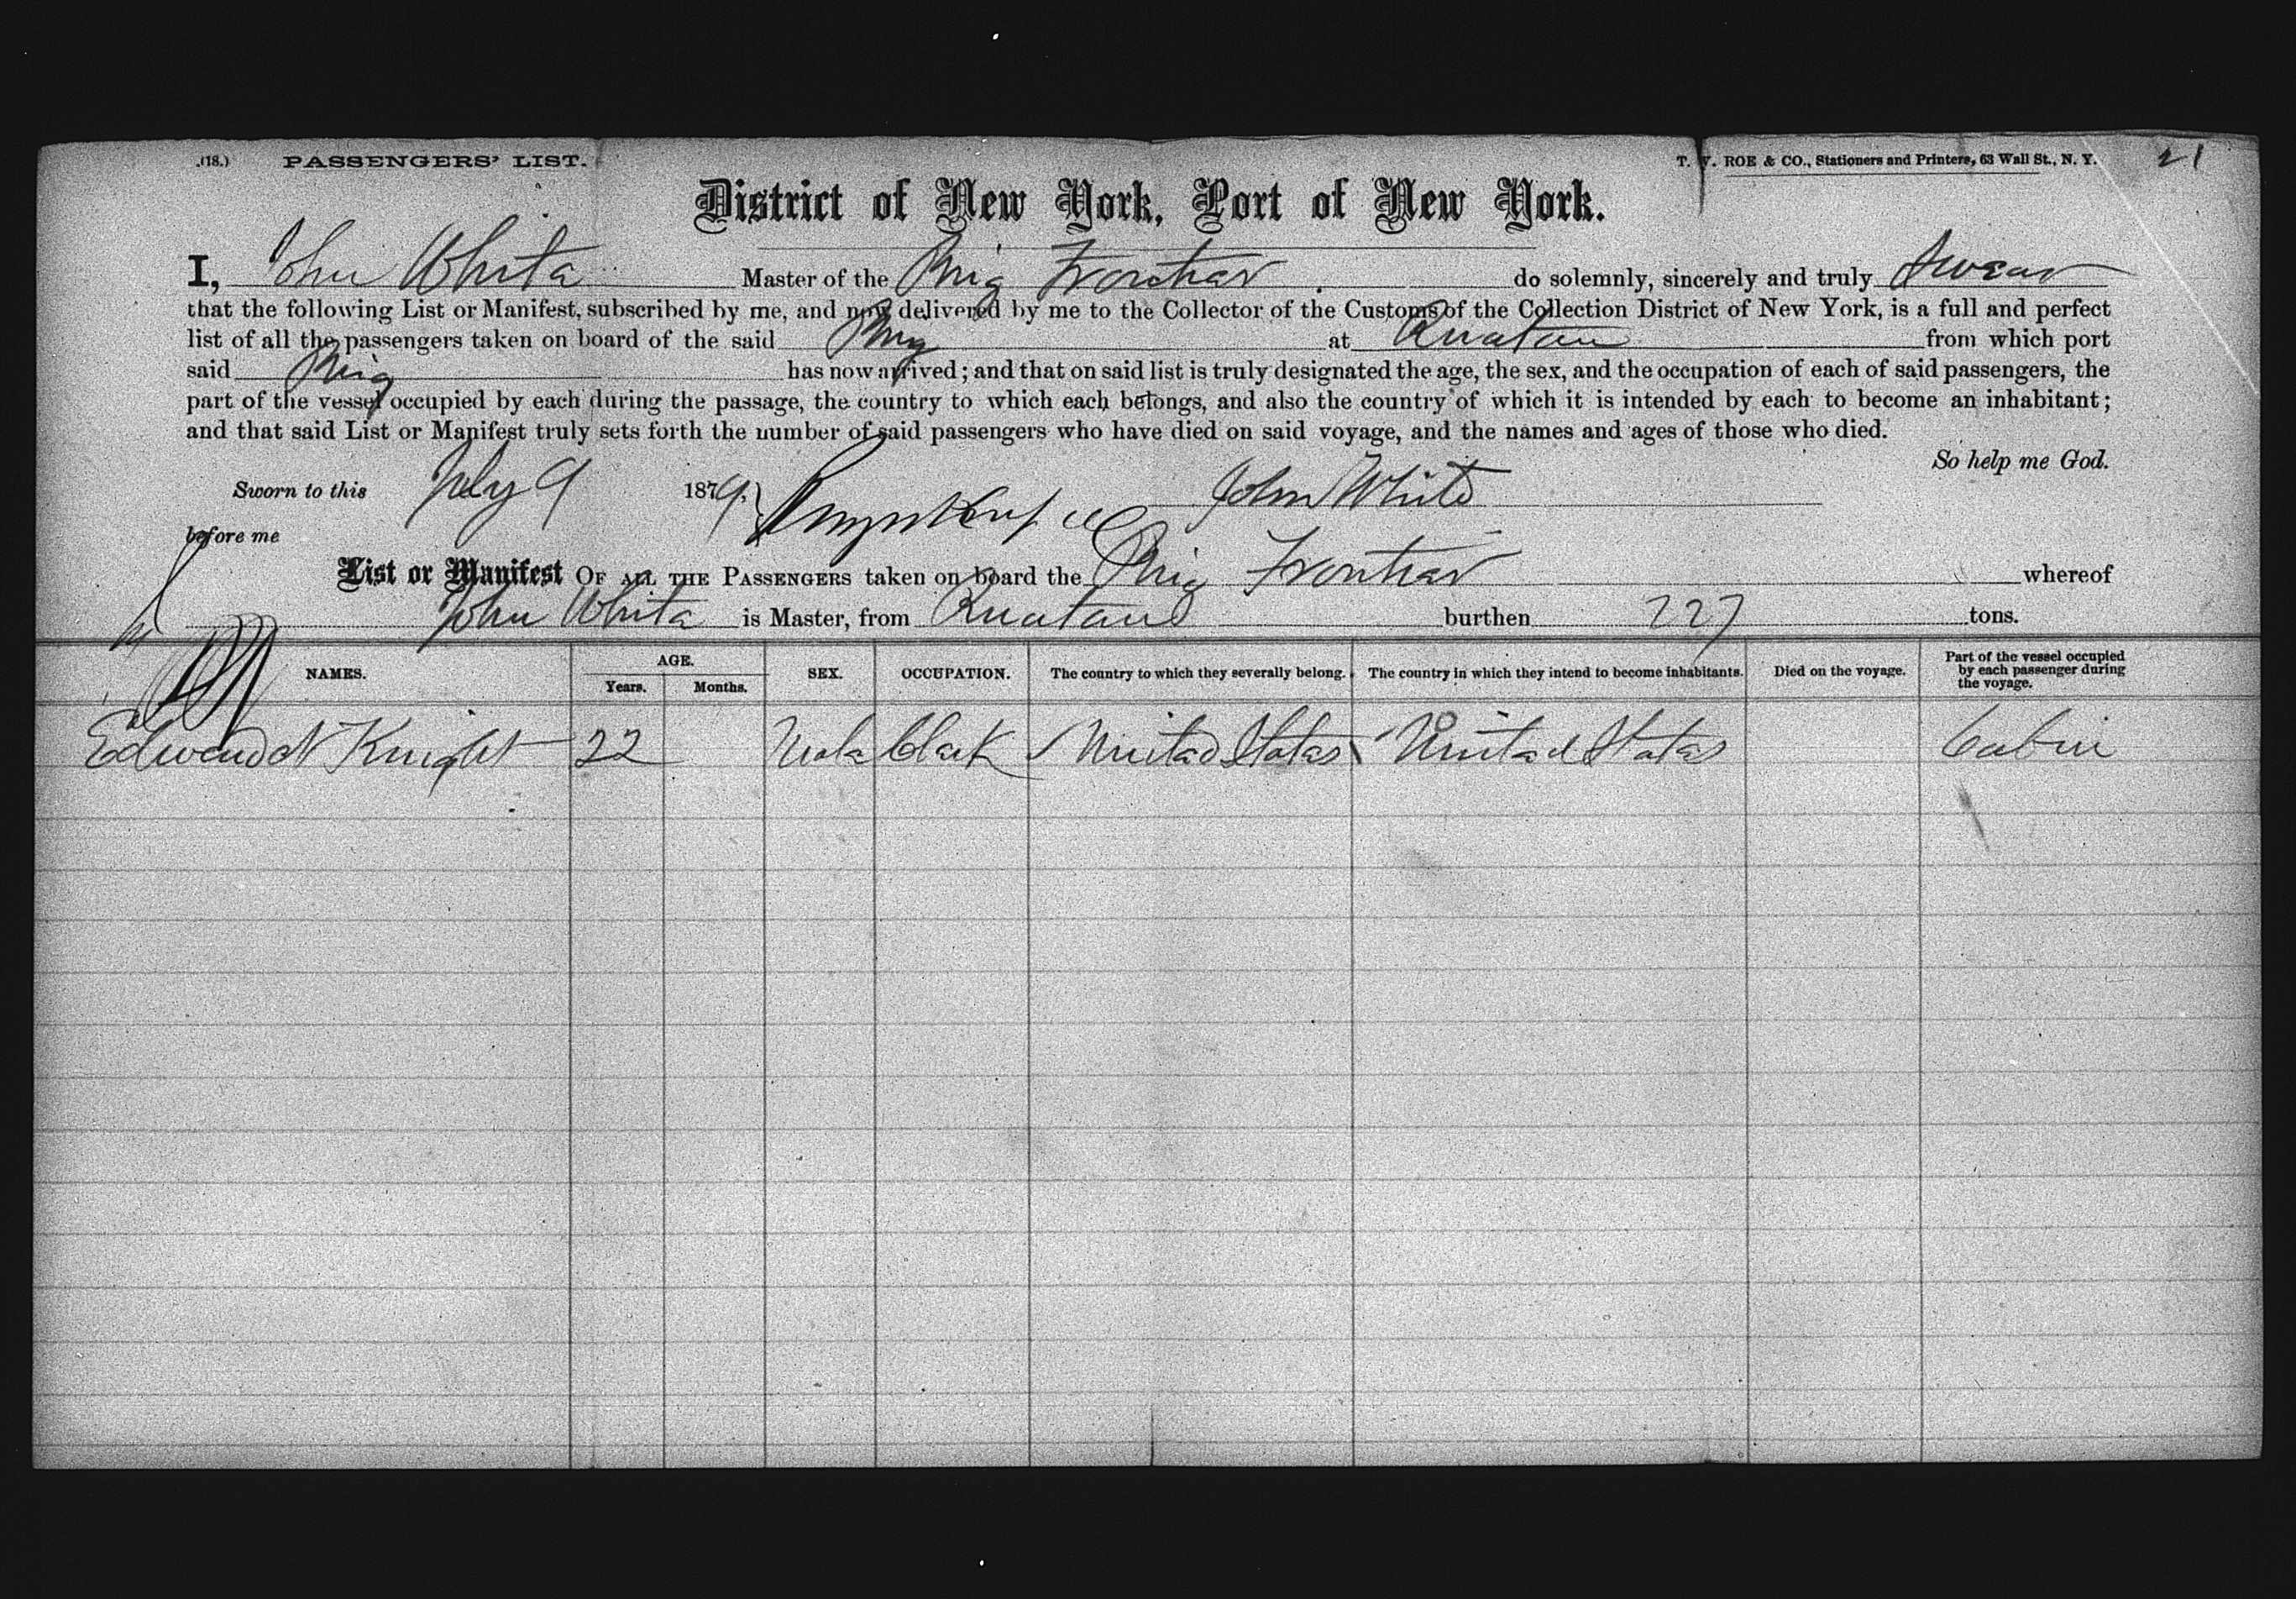 (18.) PASSENGERS' LIST. T. V. ROE & CO., Stationers and Printers, 63 Wall St., N. Y. 21
District of New York, Port of New York.
I, John White Master of the Brig Frontier do solemnly, sincerely and truly Swear
that the following List or Manifest, subscribed by me, and now delivered by me to the Collector of the Customs of the Collection District of New York, is a full and perfect
list of all the passengers taken on board of the said Brig at Ruatan from which port
said Brig has now arrived; and that on said list is truly designated the age, the sex, and the occupation of each of said passengers, the
part of the vessel occupied by each during the passage, the country to which each belongs, and also the country of which it is intended by each to become an inhabitant;
and that said List or Manifest truly sets forth the number of said passengers who have died on said voyage, and the names and ages of those who died.
So help me God.
Sworn to this July 9 1879. John White
before me
List or Manifest OF ALL THE PASSENGERS taken on board the Brig Frontier whereof
John White is Master, from Ruatan burthen 227 tons.
NAMES. AGE. Years. Months. SEX. OCCUPATION. The country to which they severally belong. The country in which they intend to become inhabitants. Died on the voyage. Part of the vessel occupied by each passenger during the voyage.
Knight 22 Male Clerk United States United States Cabin